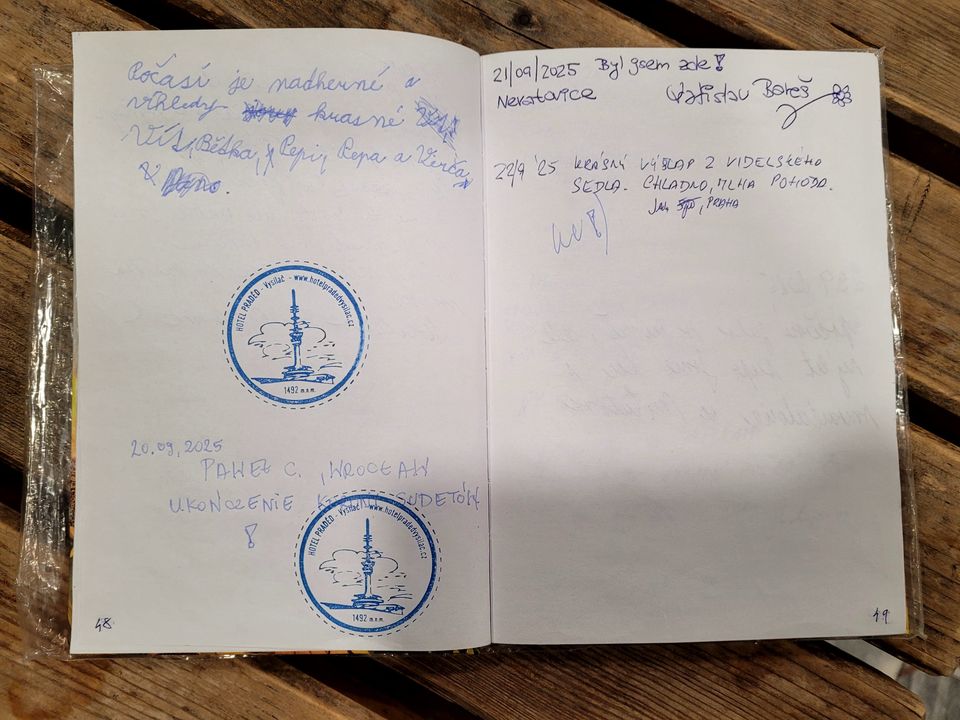 Počasí je nadherné a
vihledy krasné
Víťs, Bětka, y Pepi, Pepa a Verča
HOTEL PRADĚD - Vysílač - www.hotelpradedvysilac.cz
1492 m.n.m.
20.09.2025
PAWEŁ C., WROCŁAW
UKOŃCZENIE SUDETÓW
!
HOTEL PRADĚD - Vysílač - www.hotelpradedvysilac.cz
1492 m.n.m.
48
21/09/2025 Byl jsem zde!
Vratislav Bareš
22/9 '25 KRÁSNÝ VÝŠLAP Z VIDELSKÉHO
SEDLA. CHLADNO, MLHA POHODA.
JAN, PRAHA
49